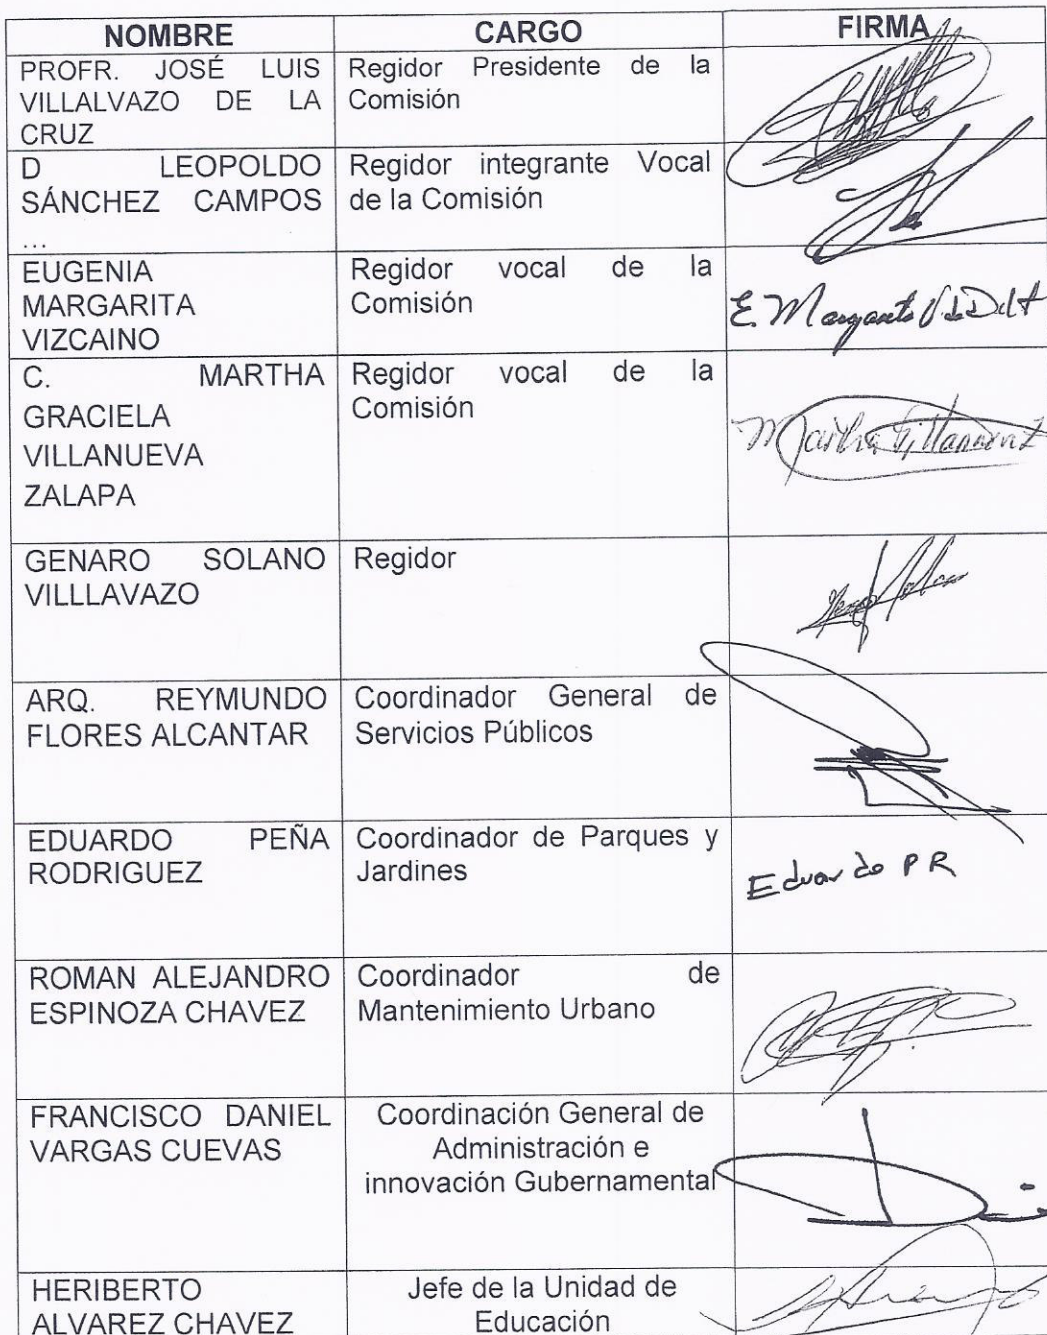 NOMBRE CARGO FIRMA
PROFR. JOSÉ LUIS
VILLALVAZO DE LA
CRUZ
Regidor Presidente de la
Comisión
D LEOPOLDO
SÁNCHEZ CAMPOS
...
Regidor integrante Vocal
de la Comisión
EUGENIA
MARGARITA
VIZCAINO
Regidor vocal de la
Comisión
E. Margarita
C. MARTHA
GRACIELA
VILLANUEVA
ZALAPA
Regidor vocal de la
Comisión
Martha Villanueva Z
GENARO SOLANO
VILLLAVAZO
Regidor
ARQ. REYMUNDO
FLORES ALCANTAR
Coordinador General de
Servicios Públicos
EDUARDO PEÑA
RODRIGUEZ
Coordinador de Parques y
Jardines
Eduardo P R
ROMAN ALEJANDRO
ESPINOZA CHAVEZ
Coordinador de
Mantenimiento Urbano
FRANCISCO DANIEL
VARGAS CUEVAS
Coordinación General de
Administración e
innovación Gubernamental
HERIBERTO
ALVAREZ CHAVEZ
Jefe de la Unidad de
Educación